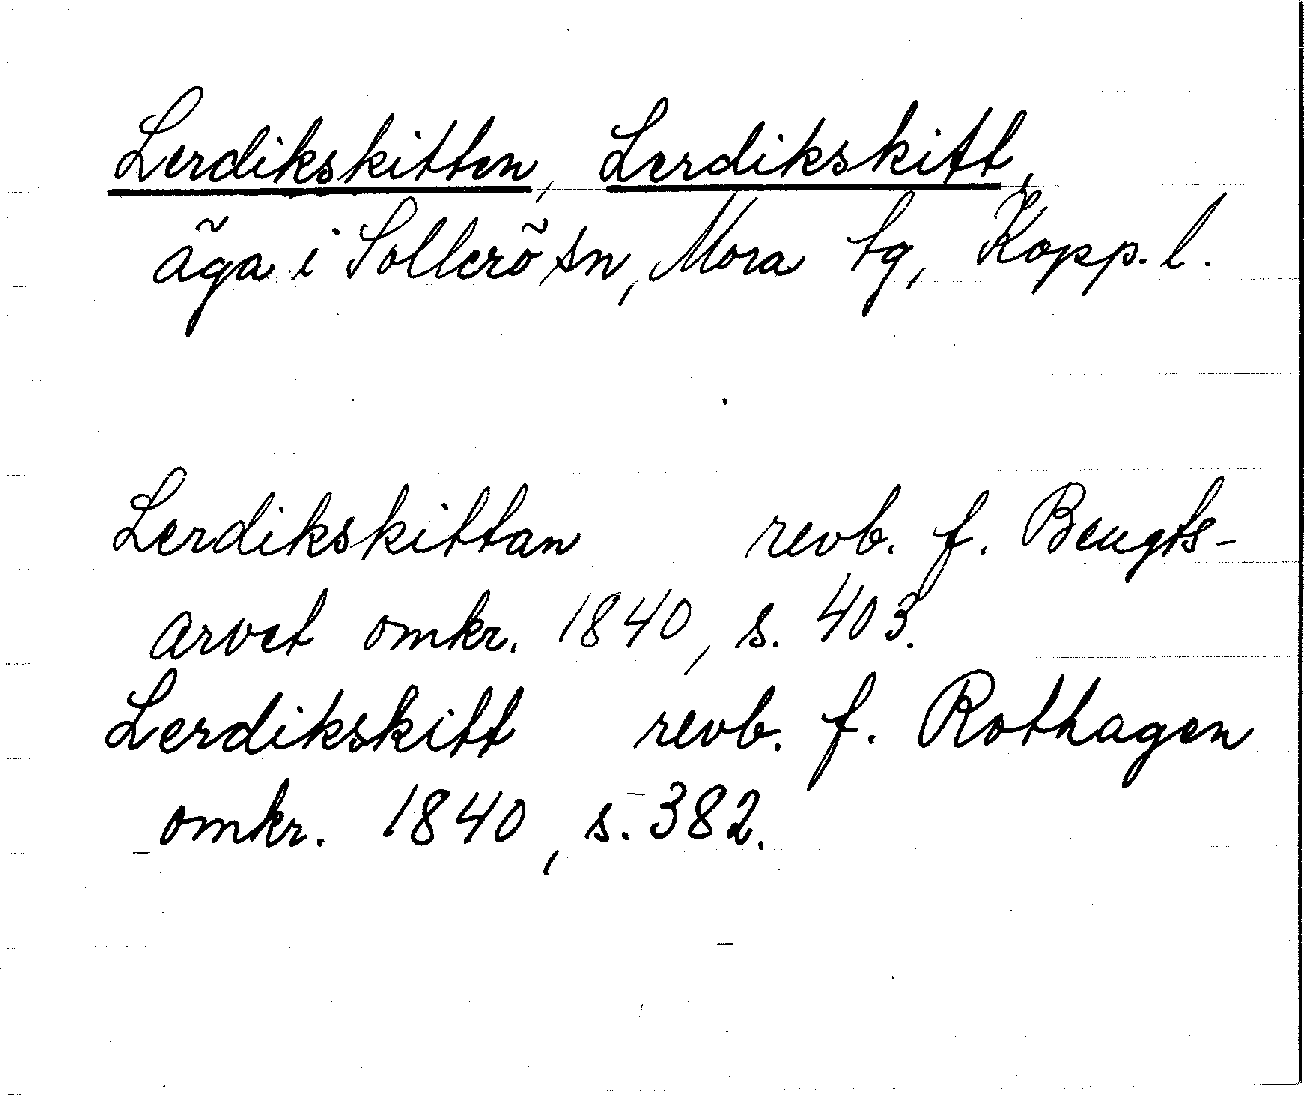 Lerdikskitten, Lerdikskitt,
äga i Sollerö sn, Mora tg, Kopp. l.
Lerdikskittan revb. f. Bengts-
arvet omkr. 1840, s. 403.
Lerdikskitt revb. f. Rothagen
omkr. 1840, s. 382.